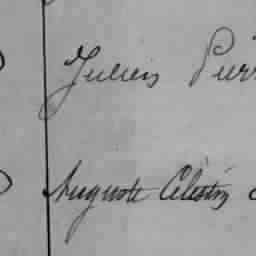 Julien
Auguste Célestin